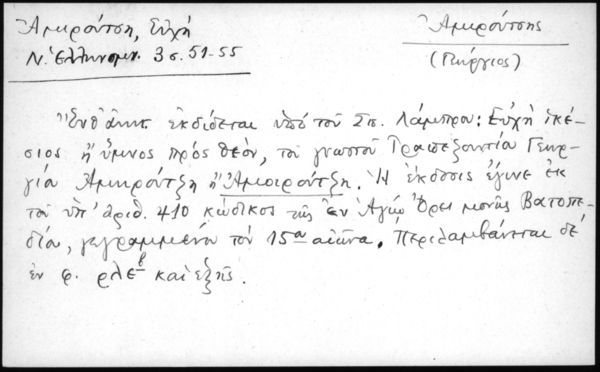 Ἀμιρούτση, Εὐχὴ
Ν. Ἑλληνομν. 3 σ. 51-55
Ἀμιρούτσης
(Γεώργιος)
ἐκδίδεται ὑπὸ τοῦ Σπ. Λάμπρου: Εὐχὴ ἱκέ-
σιος ἢ ὕμνος πρὸς Θεόν, τοῦ γνωστοῦ Τραπεζουντίου Γεωρ-
γίου Ἀμιρούτζη ἢ Ἀμοιρούτζη. Ἡ ἔκδοσις ἔγινε ἐκ
τοῦ ὑπ' ἀριθ. 410 κώδικος τῆς ἐν Ἁγίῳ Ὄρει μονῆς Βατοπε-
δίου, γεγραμμένου τὸν 15ον αἰῶνα. Περιλαμβάνεται δὲ
ἐν φ. ρλε β καὶ ἑξῆς.